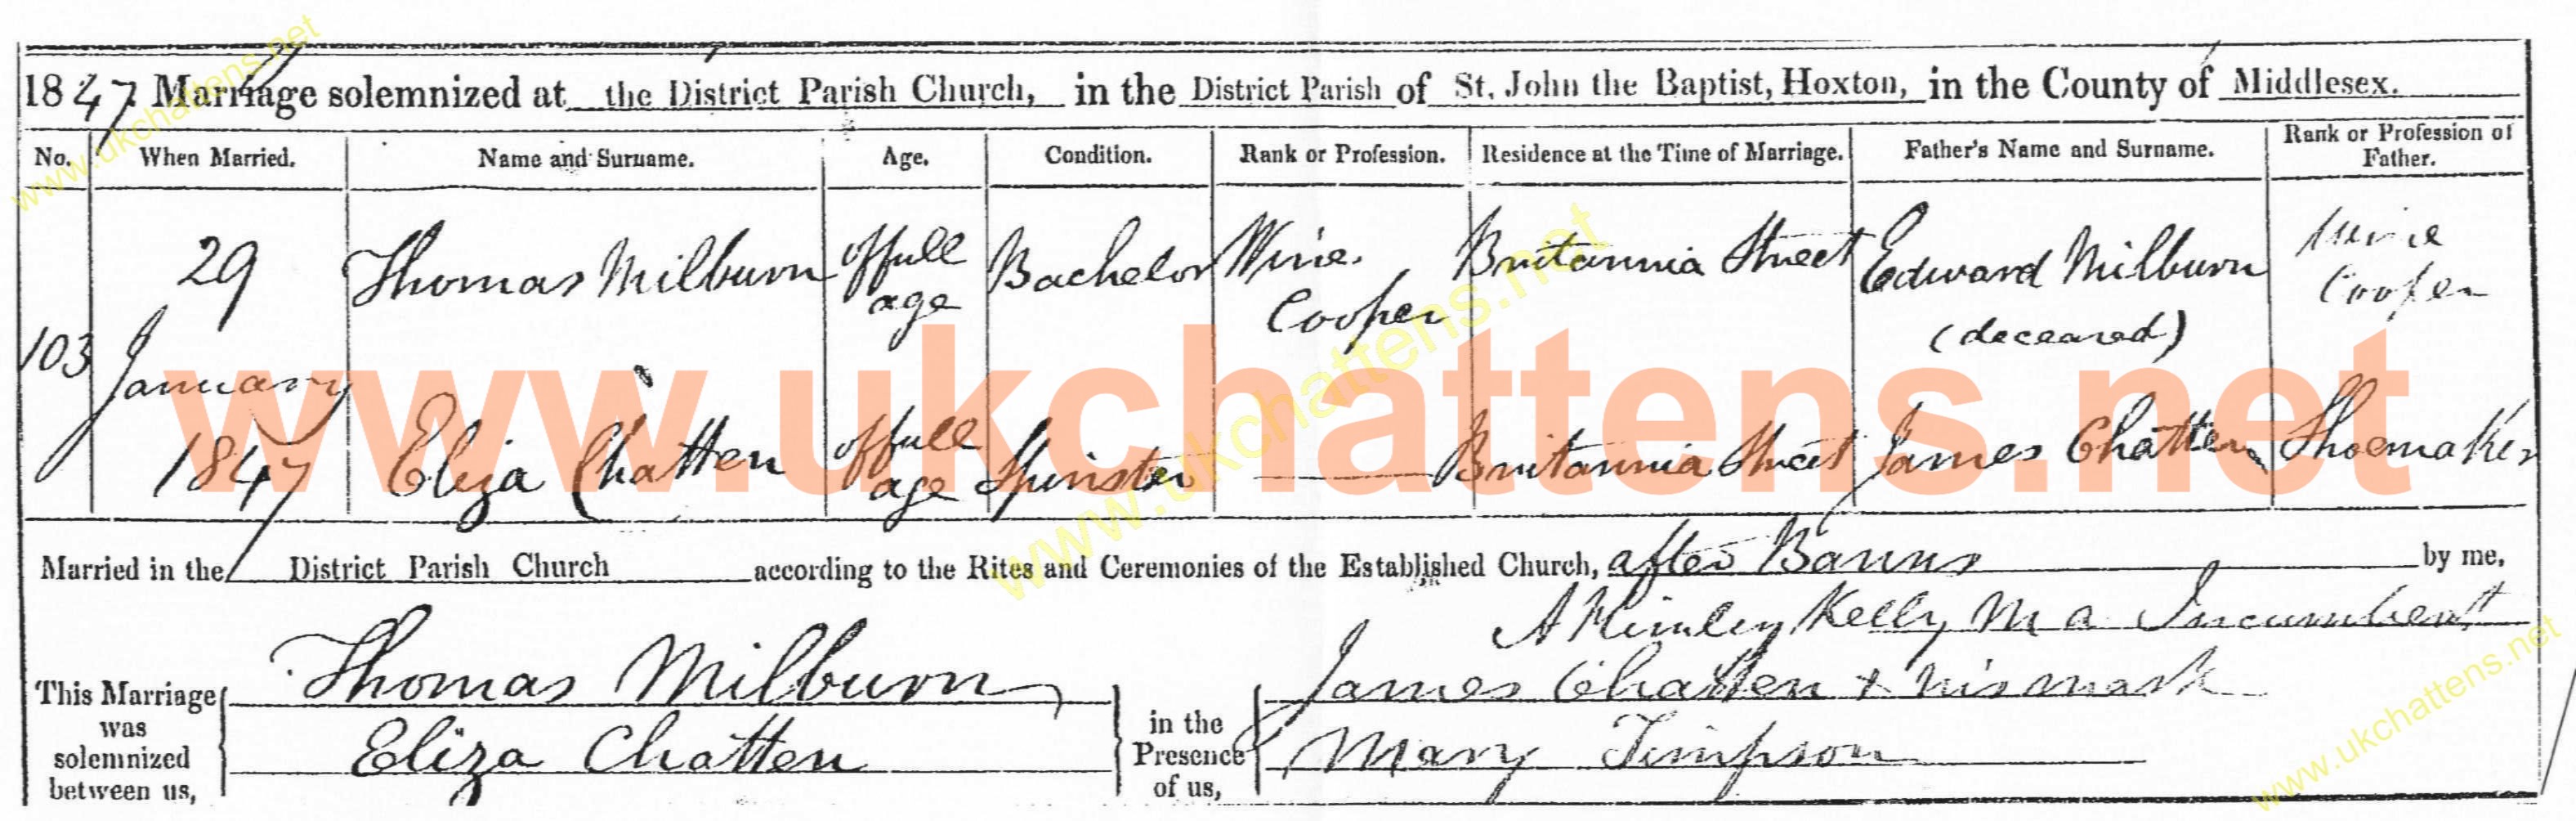 1847 Marriage solemnized at the District Parish Church, in the District Parish of St. John the Baptist, Hoxton, in the County of Middlesex.
No. When Married. Name and Surname. Age. Condition. Rank or Profession. Residence at the Time of Marriage. Father's Name and Surname. Rank or Profession of Father.
103 29 January 1847
Thomas Milburn of full age Bachelor Wine Cooper Britannia Street Edward Milburn (deceased) Wine Cooper
Eliza Chatten of full age Spinster Britannia Street James Chatten Shoemaker
www.ukchattens.net
Married in the District Parish Church according to the Rites and Ceremonies of the Established Church, after Banns by me,
A Kelly M A Incumbent
This Marriage was solemnized between us,
Thomas Milburn
Eliza Chatten
in the Presence of us,
James Chatten x his mark
Mary Timpson
www.ukchattens.net
www.ukchattens.net
www.ukchattens.net